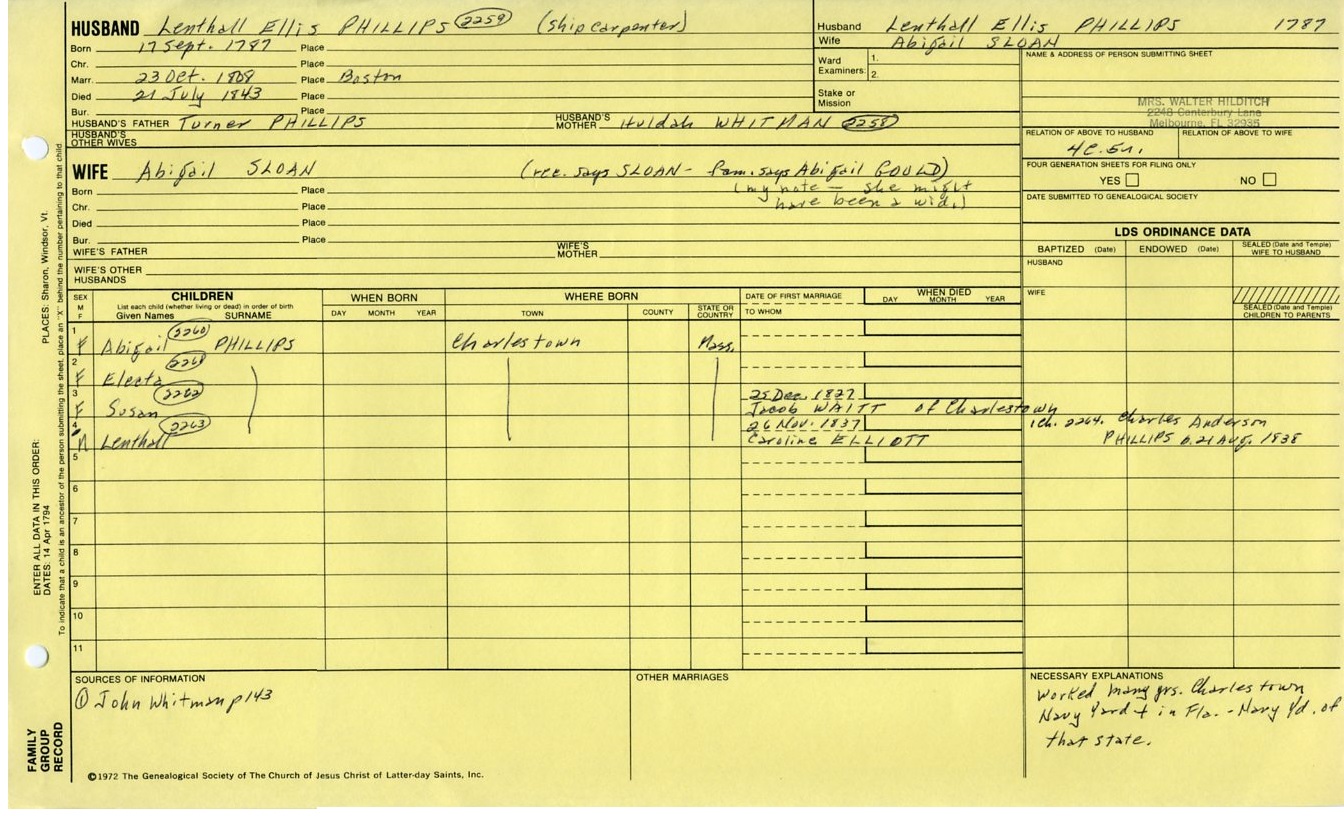 HUSBAND Lenthall Ellis PHILLIPS 2259 (ship carpenter)
Born 17 Sept. 1787 Place
Chr. Place
Marr. 23 Oct. 1808 Place Boston
Died 21 July 1843 Place
Bur. Place
HUSBAND'S FATHER Turner PHILLIPS HUSBAND'S MOTHER Huldah WHITMAN 2258
HUSBAND'S OTHER WIVES
Husband Lenthall Ellis PHILLIPS 1787
Wife Abigail SLOAN
Ward Examiners: 1.
2.
Stake or Mission
NAME & ADDRESS OF PERSON SUBMITTING SHEET
MRS. WALTER HILDITCH
2248 Canterbury Lane
Melbourne, FL 32935
RELATION OF ABOVE TO HUSBAND RELATION OF ABOVE TO WIFE
4C.5r.
FOUR GENERATION SHEETS FOR FILING ONLY
YES NO
DATE SUBMITTED TO GENEALOGICAL SOCIETY
WIFE Abigail SLOAN (rec. says SLOAN - fam. says Abigail GOULD)
(my note - she might
have been a wid.)
Born Place
Chr. Place
Died Place
Bur. Place
WIFE'S FATHER WIFE'S MOTHER
WIFE'S OTHER HUSBANDS
LDS ORDINANCE DATA
BAPTIZED (Date) ENDOWED (Date) SEALED (Date and Temple) WIFE TO HUSBAND
HUSBAND
WIFE
SEALED (Date and Temple) CHILDREN TO PARENTS
SEX M F
CHILDREN
List each child (whether living or dead) in order of birth
Given Names SURNAME
WHEN BORN
DAY MONTH YEAR
WHERE BORN
TOWN COUNTY STATE OR COUNTRY
DATE OF FIRST MARRIAGE
TO WHOM
WHEN DIED
DAY MONTH YEAR
1 F Abigail 2260 PHILLIPS Charlestown Mass.
2 F Electa 2261
3 F Susan 2262 25 Dec. 1827
Jacob WAITT of Charlestown
4 M Lenthall 2263 26 Nov. 1837
Caroline ELLIOTT
1 ch. 2264. Charles Anderson
PHILLIPS b. 21 Aug. 1838
5
6
7
8
9
10
11
SOURCES OF INFORMATION
① John Whitman p143
OTHER MARRIAGES
NECESSARY EXPLANATIONS
Worked many yrs. Charlestown
Navy Yard + in Fla. - Navy Yd. of
that state.
©1972 The Genealogical Society of The Church of Jesus Christ of Latter-day Saints, Inc.
FAMILY GROUP RECORD
ENTER ALL DATA IN THIS ORDER:
DATES: 14 Apr 1794
PLACES: Sharon, Windsor, Vt.
To indicate that a child is an ancestor of the person submitting the sheet, place an "X" behind the number pertaining to that child.